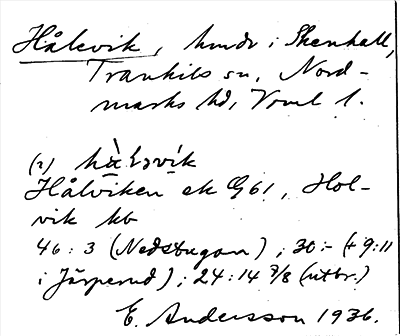 Hålevik, hmdr i Skenhall,
Trankils sn, Nord-
marks hd, Vrml l.
(2) hàlǝvík
Hålviken ek G61, Hol-
vik kb
46:3 (Nedstugan); 30:- (+9:11
i Järperud); 24:14 7/8 (utbr.)
E. Andersson 1936.